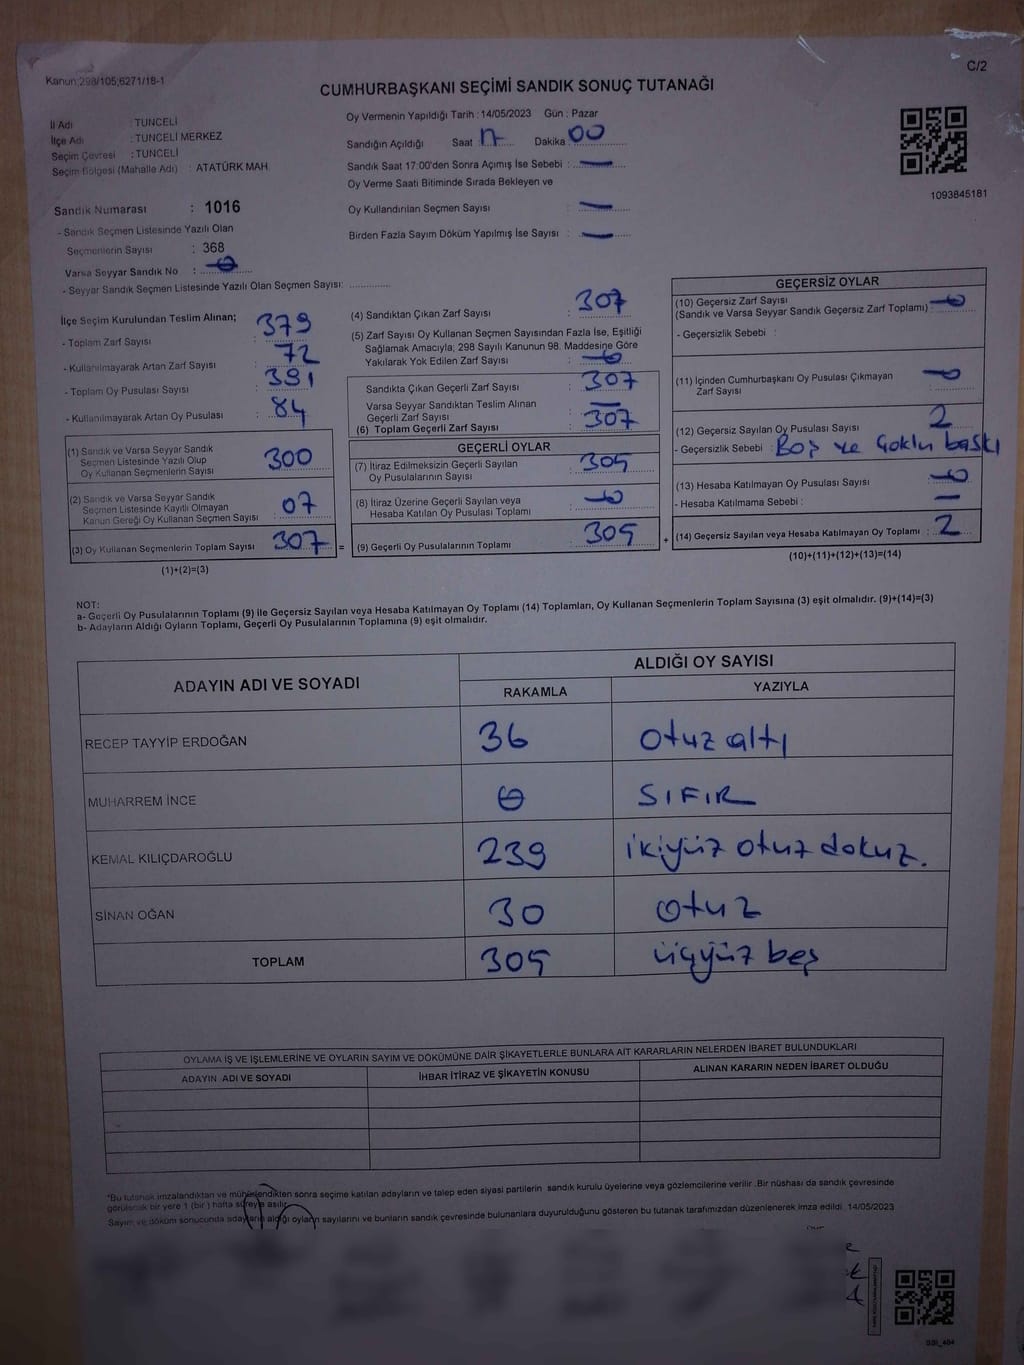 Kanun:298/105,6271/18-1
C/2
CUMHURBAŞKANI SEÇİMİ SANDIK SONUÇ TUTANAĞI
İl Adı : TUNCELİ
İlçe Adı : TUNCELİ MERKEZ
Seçim Çevresi : TUNCELİ
Seçim Bölgesi (Mahalle Adı) : ATATÜRK MAH.
Oy Vermenin Yapıldığı Tarih : 14/05/2023 Gün : Pazar
Sandığın Açıldığı Saat 17 Dakika 00
Sandık Saat 17:00'den Sonra Açımış İse Sebebi : —
Oy Verme Saati Bitiminde Sırada Bekleyen ve
Oy Kullandırılan Seçmen Sayısı : —
Birden Fazla Sayım Döküm Yapılmış İse Sayısı : —
1093845181
Sandık Numarası : 1016
- Sandık Seçmen Listesinde Yazılı Olan
Seçmenlerin Sayısı : 368
Varsa Seyyar Sandık No : 0
- Seyyar Sandık Seçmen Listesinde Yazılı Olan Seçmen Sayısı: ..............
İlçe Seçim Kurulundan Teslim Alınan;
- Toplam Zarf Sayısı : 379
- Kullanılmayarak Artan Zarf Sayısı : 72
- Toplam Oy Pusulası Sayısı : 391
- Kullanılmayarak Artan Oy Pusulası : 84
(1) Sandık ve Varsa Seyyar Sandık
Seçmen Listesinde Yazılı Olup
Oy Kullanan Seçmenlerin Sayısı : 300
(2) Sandık ve Varsa Seyyar Sandık
Seçmen Listesinde Kayıtlı Olmayan
Kanun Gereği Oy Kullanan Seçmen Sayısı : 07
(3) Oy Kullanan Seçmenlerin Toplam Sayısı : 307 =
(1)+(2)=(3)
(4) Sandıktan Çıkan Zarf Sayısı : 307
(5) Zarf Sayısı Oy Kullanan Seçmen Sayısından Fazla İse, Eşitliği
Sağlamak Amacıyla, 298 Sayılı Kanunun 98. Maddesine Göre
Yakılarak Yok Edilen Zarf Sayısı : 0
Sandıkta Çıkan Geçerli Zarf Sayısı : 307
Varsa Seyyar Sandıktan Teslim Alınan
Geçerli Zarf Sayısı : —
(6) Toplam Geçerli Zarf Sayısı : 307
GEÇERLİ OYLAR
(7) İtiraz Edilmeksizin Geçerli Sayılan
Oy Pusulalarının Sayısı : 305
(8) İtiraz Üzerine Geçerli Sayılan veya
Hesaba Katılan Oy Pusulası Toplamı : 0
(9) Geçerli Oy Pusulalarının Toplamı : 305 +
GEÇERSİZ OYLAR
(10) Geçersiz Zarf Sayısı
(Sandık ve Varsa Seyyar Sandık Geçersiz Zarf Toplamı) : 0
- Geçersizlik Sebebi :
(11) İçinden Cumhurbaşkanı Oy Pusulası Çıkmayan
Zarf Sayısı : 0
(12) Geçersiz Sayılan Oy Pusulası Sayısı : 2
- Geçersizlik Sebebi : Boş ve Çoklu baskı
(13) Hesaba Katılmayan Oy Pusulası Sayısı : 0
- Hesaba Katılmama Sebebi : —
(14) Geçersiz Sayılan veya Hesaba Katılmayan Oy Toplamı : 2
(10)+(11)+(12)+(13)=(14)
NOT:
a- Geçerli Oy Pusulalarının Toplamı (9) ile Geçersiz Sayılan veya Hesaba Katılmayan Oy Toplamı (14) Toplamları, Oy Kullanan Seçmenlerin Toplam Sayısına (3) eşit olmalıdır. (9)+(14)=(3)
b- Adayların Aldığı Oyların Toplamı, Geçerli Oy Pusulalarının Toplamına (9) eşit olmalıdır.
ADAYIN ADI VE SOYADI
ALDIĞI OY SAYISI
RAKAMLA YAZIYLA
RECEP TAYYİP ERDOĞAN 36 otuz altı
MUHARREM İNCE 0 SIFIR
KEMAL KILIÇDAROĞLU 239 ikiyüz otuz dokuz.
SİNAN OĞAN 30 otuz
TOPLAM 305 üçyüz beş
OYLAMA İŞ VE İŞLEMLERİNE VE OYLARIN SAYIM VE DÖKÜMÜNE DAİR ŞİKAYETLERLE BUNLARA AİT KARARLARIN NELERDEN İBARET BULUNDUKLARI
ADAYIN ADI VE SOYADI İHBAR İTİRAZ VE ŞİKAYETİN KONUSU ALINAN KARARIN NEDEN İBARET OLDUĞU
*Bu tutanak imzalandıktan ve mühürlendikten sonra seçime katılan adayların ve talep eden siyasi partilerin sandık kurulu üyelerine veya gözlemcilerine verilir .Bir nüshası da sandık çevresinde
görülecek bir yere 1 (bir ) hafta süreyle asılır.
Sayım ve döküm sonucunda adayların aldığı oyların sayılarını ve bunların sandık çevresinde bulunanlara duyurulduğunu gösteren bu tutanak tarafımızdan düzenlenerek imza edildi. 14/05/2023